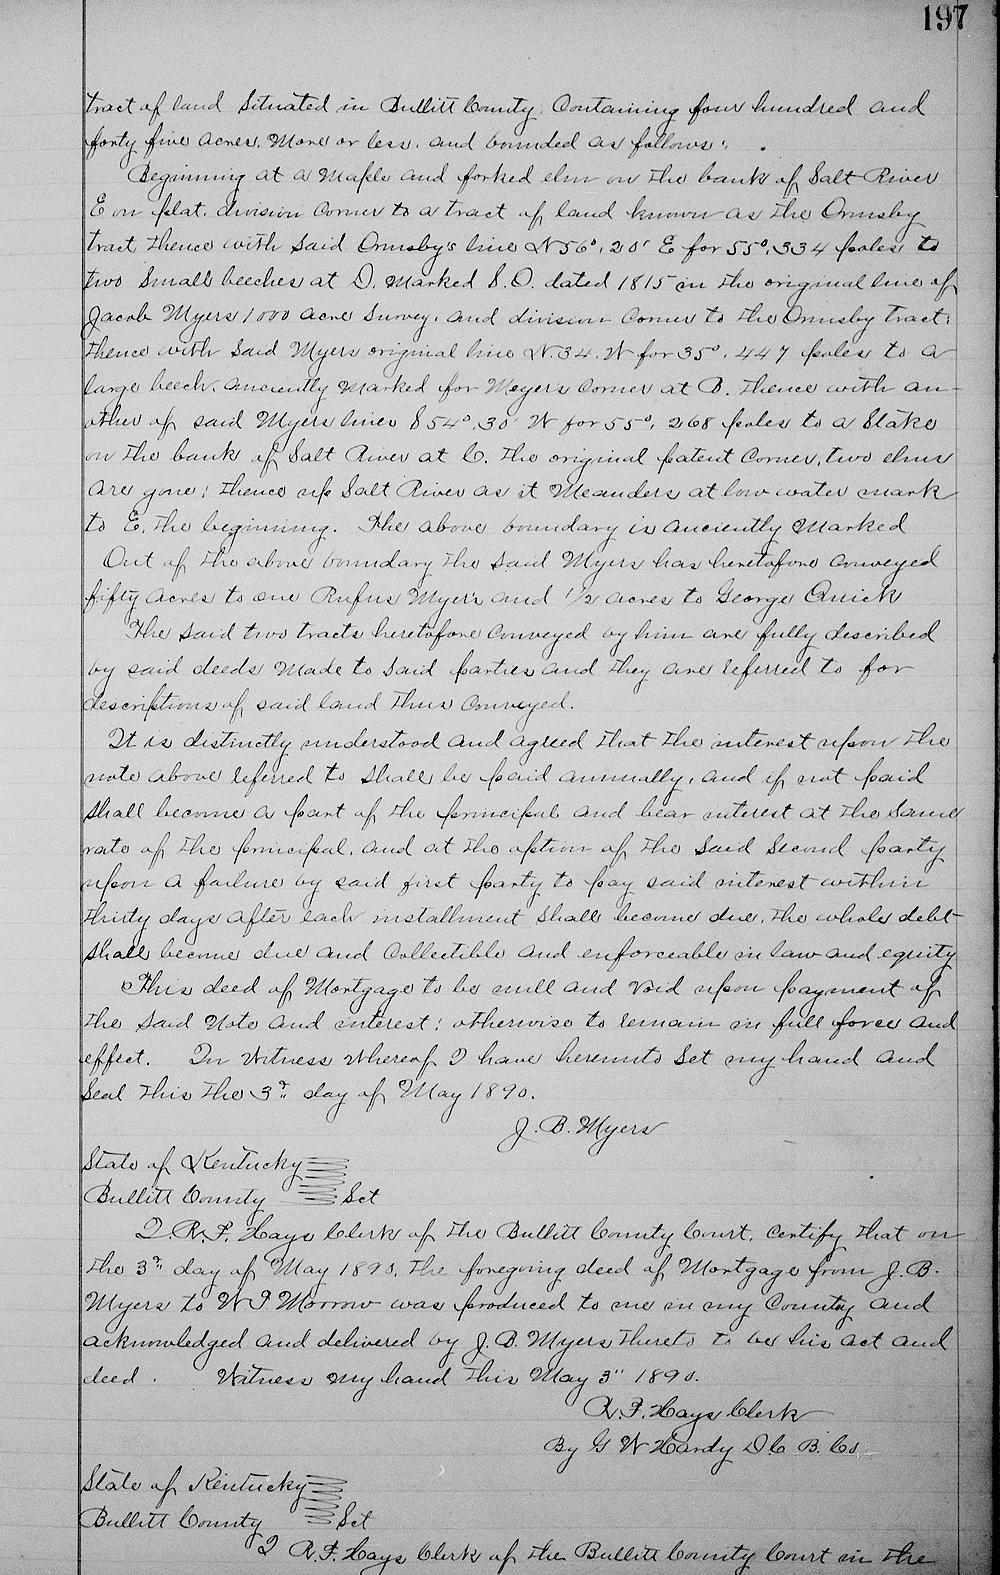 197
tract of land Situated in Bullitt County, Containing four hundred and
forty five acres, More or less, and bounded as follows:
Beginning at a Maple and forked elm on the bank of Salt River
E on plat, division Corner to a tract of land known as the Ormsby
tract, thence with Said Ormsby's line N 56°, 20' E for 55°, 334 poles to
two Small beeches at D, Marked S.O. dated 1815 in the original line of
Jacob Myers 1000 acre Survey, and division Corner to the Ormsby tract,
thence with Said Myers original line N. 34. W for 35°, 447 poles to a
large beech, anciently Marked for Meyers Corner at B. thence with an-
other of said Myers lines S 54°, 30' W for 55°, 268 poles to a Stake
on the bank of Salt River at C, the original patent Corner, two elms
are gone; thence up Salt River as it Meanders at low water mark
to E, the beginning. The above boundary is anciently Marked
Out of the above boundary the Said Myers has heretofore Conveyed
fifty acres to one Rufus Myers and 1/2 acres to George Quick
The Said two tracts heretofore Conveyed by him are fully described
by said deeds Made to Said parties and they are referred to for
descriptions of said land thus Conveyed.
It is distinctly understood and agreed that the interest upon the
note above referred to Shall be paid annually, and if not paid
Shall become a part of the principal and bear interest at the Same
rate of the principal, and at the option of the Said Second party
upon a failure by said first party to pay said interest within
thirty days after each installment Shall become due, the whole debt
Shall become due and Collectible and enforceable in law and equity
This deed of Mortgage to be null and Void upon payment of
the Said Note and interest; otherwise to remain in full force and
effect. In Witness Whereof I have hereunto Set my hand and
Seal this the 3rd day of May 1890.
J. B. Myers
State of Kentucky
Bullitt County Sct
I R. F. Hays Clerk of the Bullitt County Court, Certify that on
the 3rd day of May 1890, the foregoing deed of Mortgage from J. B.
Myers to W P. Morrow was produced to me in my County and
acknowledged and delivered by J. B. Myers thereto to be his act and
deed. Witness My hand this May 3" 1890.
R. F. Hays Clerk
By G W Hardy D.C. B. Co.
State of Kentucky
Bullitt County Sct
I R. F. Hays Clerk of the Bullitt County Court in the